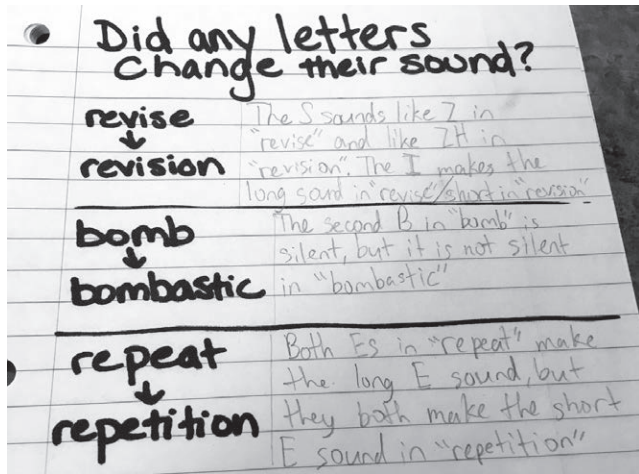 Did any letters
change their sound?
revise
revision
The S sounds like Z in
"revise" and like ZH in
"revision". The I makes the
long sound in "revise"/short in "revision"
bomb
bombastic
The second B in "bomb" is
silent, but it is not silent
in "bombastic"
repeat
repetition
Both Es in "repeat" make
the long E sound, but
they both make the short
E sound in "repetition"